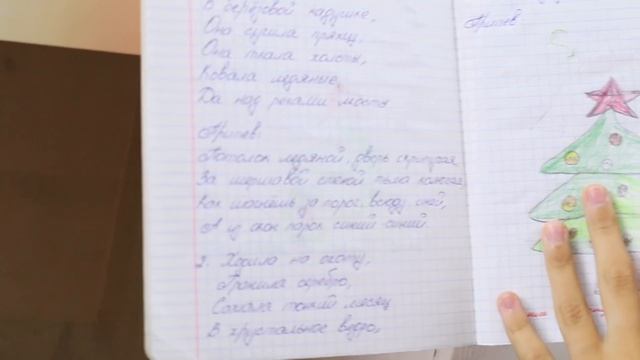 В берёзовой кадушке,
Она сучила пряжу,
Она ткала холсты,
Ковала ледяные,
Да над реками мосты
Припев:
Потолок ледяной, дверь скрипучая,
За шершавой стеной тьма колючая,
Как шагнёшь за порог, всюду иней,
А из окон парок синий-синий.
2. Ходила на охоту,
Гранила серебро,
Сажала тонкий месяц
В хрустальное ведро,
Припев